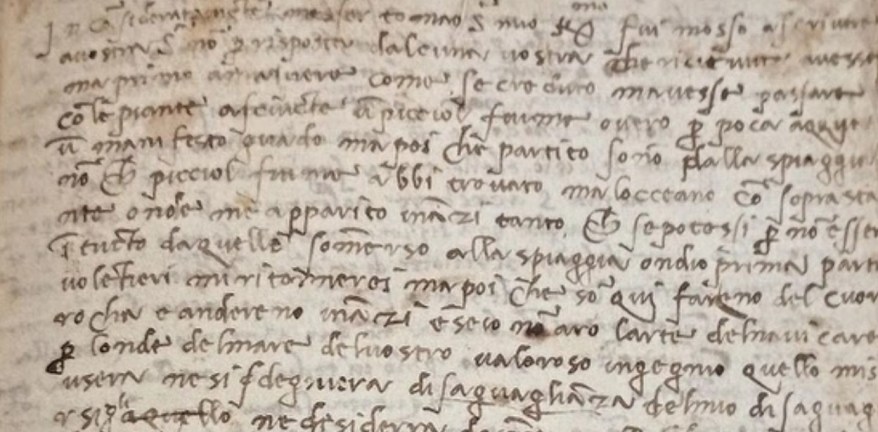 In cōsideratamēte messer tomao S. mio fui mosso a scriver
a vostra S. nō p̄ risposta dalcuna vostra che ricievuto avesse
ma p̄ mio arivere come se creduto mavesse passare
cō le piante asciucte ū picciol fiume overo p̄ poca acque
ū manifesto guado ma poi che partito sono dalla spiaggia
nō picciol fiume abbi trovato ma locceano cō soprasta
nte onde me apparito ināzi tanto sepotessi p̄ nō esser
ī tucto daquelle somerso alla spiaggia ondio prima parti
volētieri mi ritornerei ma poi che sō qui fareno del cuor
rocha e anderenoināzi e seio nō aro larte del navicare
p̄ londe del mare del vostro valoroso ingegnio quello mis
usera ne si sdegnera disaguaglianza del mio disaguag
ne desiderrā